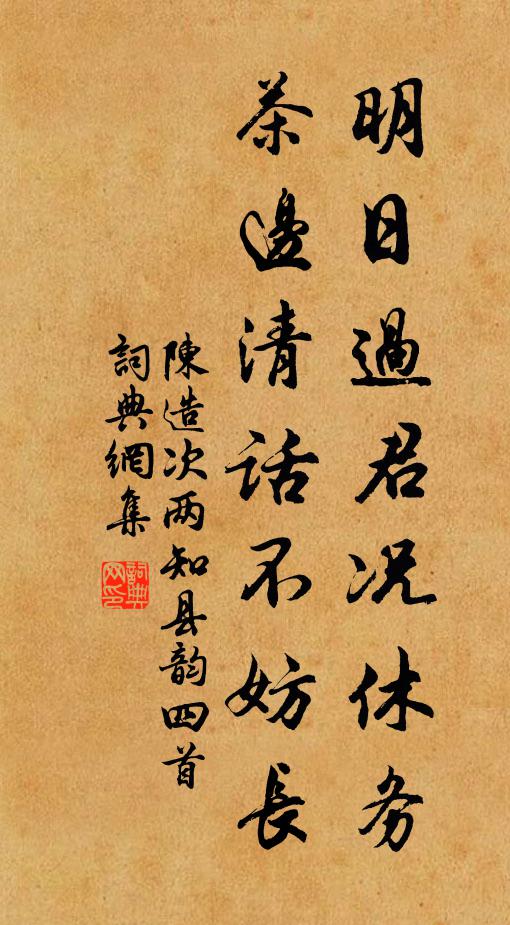 明日過君況休务
茶邊清話不妨長
陳造次两知县韵四首
詞典網集
詞典网印